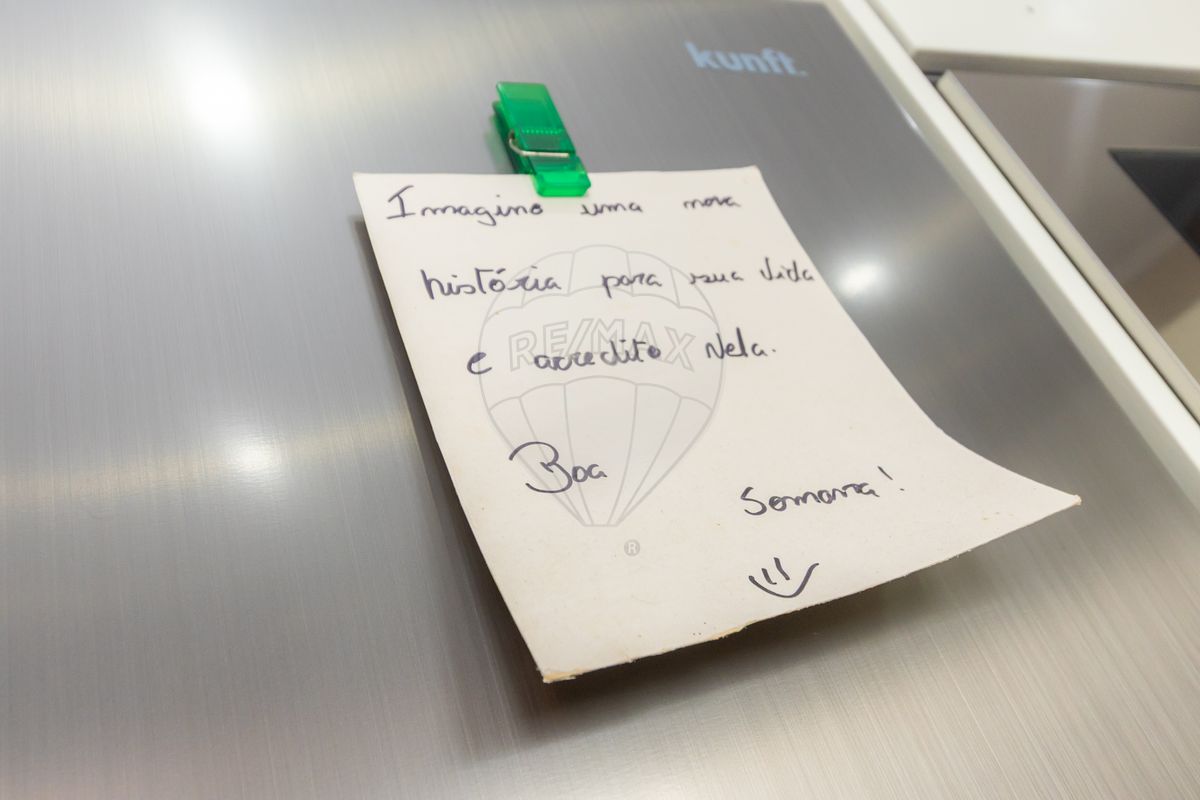 kunft.
Imagino uma nova
história para sua vida
RE/MAX
e acredito Nela.
Boa
Semana!
®